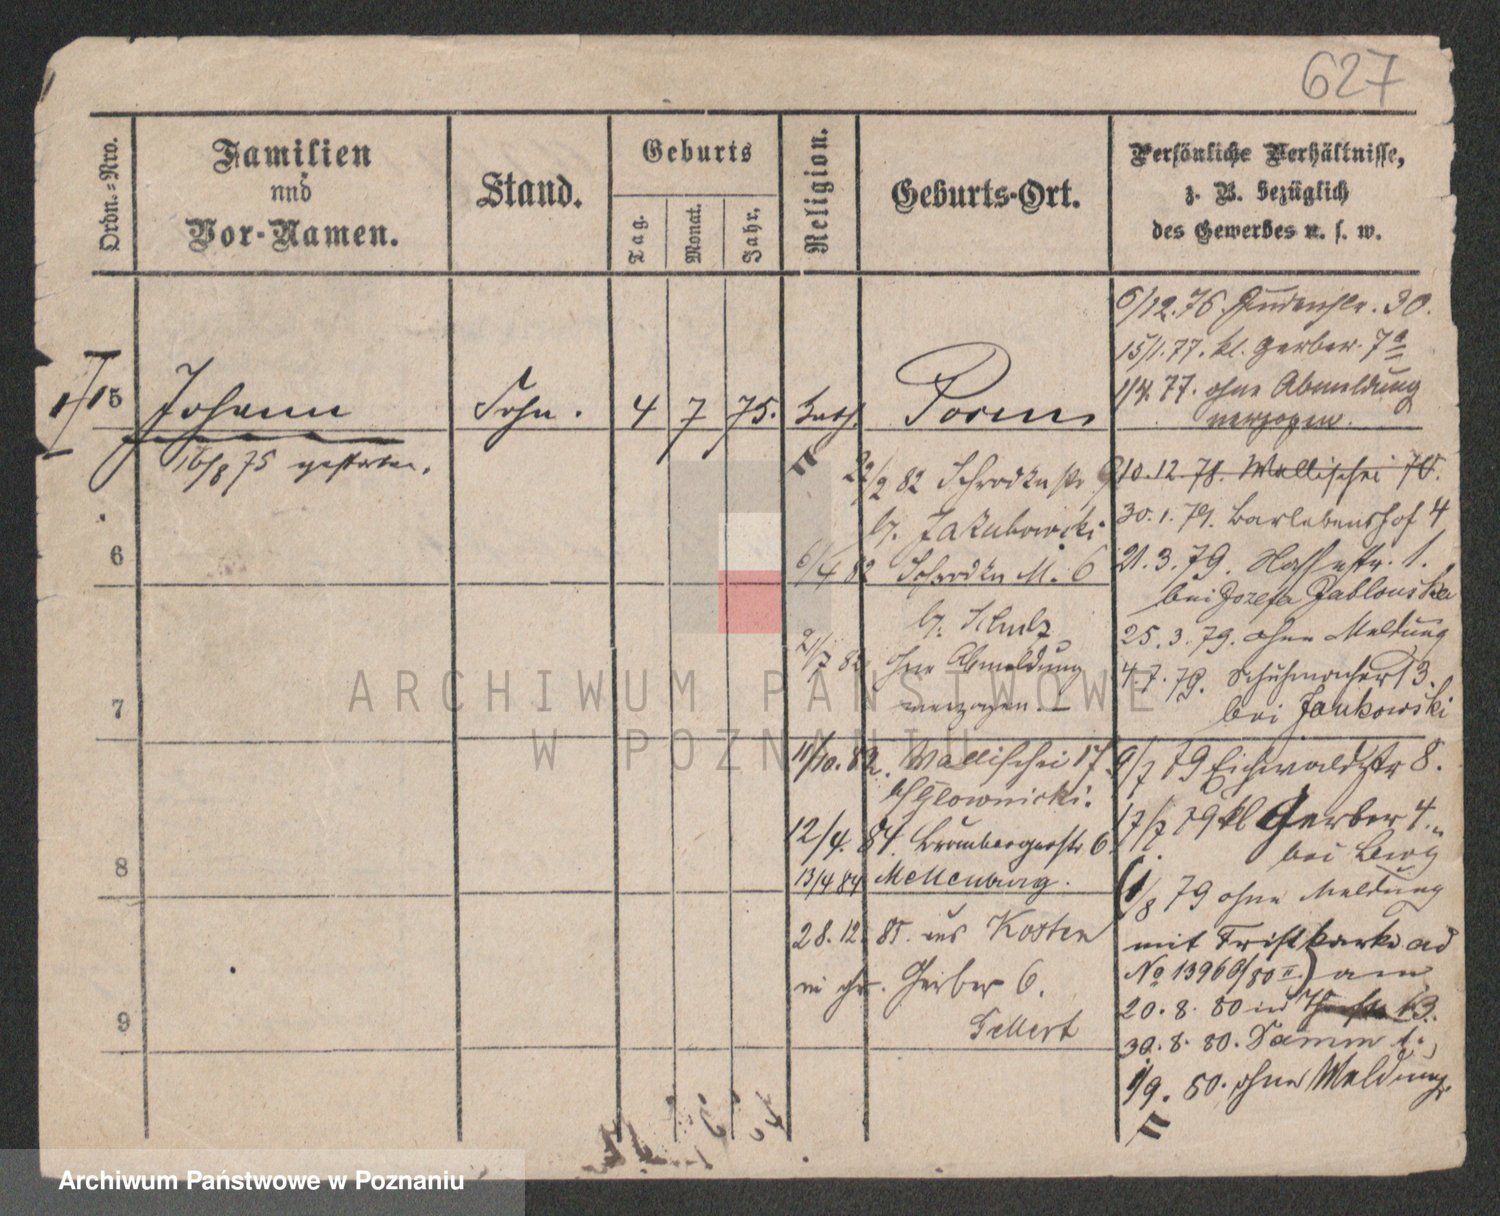 627
Ordn.-Nro.
Familien
und
Vor-Namen.
Stand.
Geburts
Tag.
Monat.
Jahr,
Religion.
Geburts-Ort.
Persönliche Verhältnisse,
z. B. bezüglich
des Gewerbes u. s. w.
5
Johann
Sohn.
4
7
75.
kath.
Posen
16/8 75 gestorben.
6
7
8
9
6/12.76. Judenstr. 30.
15/1.77. kl. Gerber. 7a
1/4. 77. ohne Abmeldung
verzogen.
10.12.78. Wallischei 76.
30.1.79. Barlebenshof 4
21.3.79. 1.
bei Jozefa Jablonska
25.3.79. ohne Meldung
4.7.79. Schuhmacher 13.
bei Jankowski
9/7 79 Eichwaldstr 8.
17/7 79 kl Gerber 4.
bei
1/8 79 ohne Meldung
mit
No 13960/80 II. am
20.8.80 in 13.
30.8.80. Damm 1.
1/9. 80. ohne Meldung.
22/2 82 Schrodka 9
b. Jakubowski
6/4 82 Schrodka M. 6
b. Schulz
2/7 82 ohne Abmeldung
verzogen.
11/10. 82. Wallischei 17
b/ Glownicki.
12/4. 84. Brombergerstr 6
13/4 84
28.12. 85. aus Kosten
Gerber 6.
Gellert
ARCHIWUM PAŃSTWOWE
W POZNANIU
Archiwum Państwowe w Poznaniu